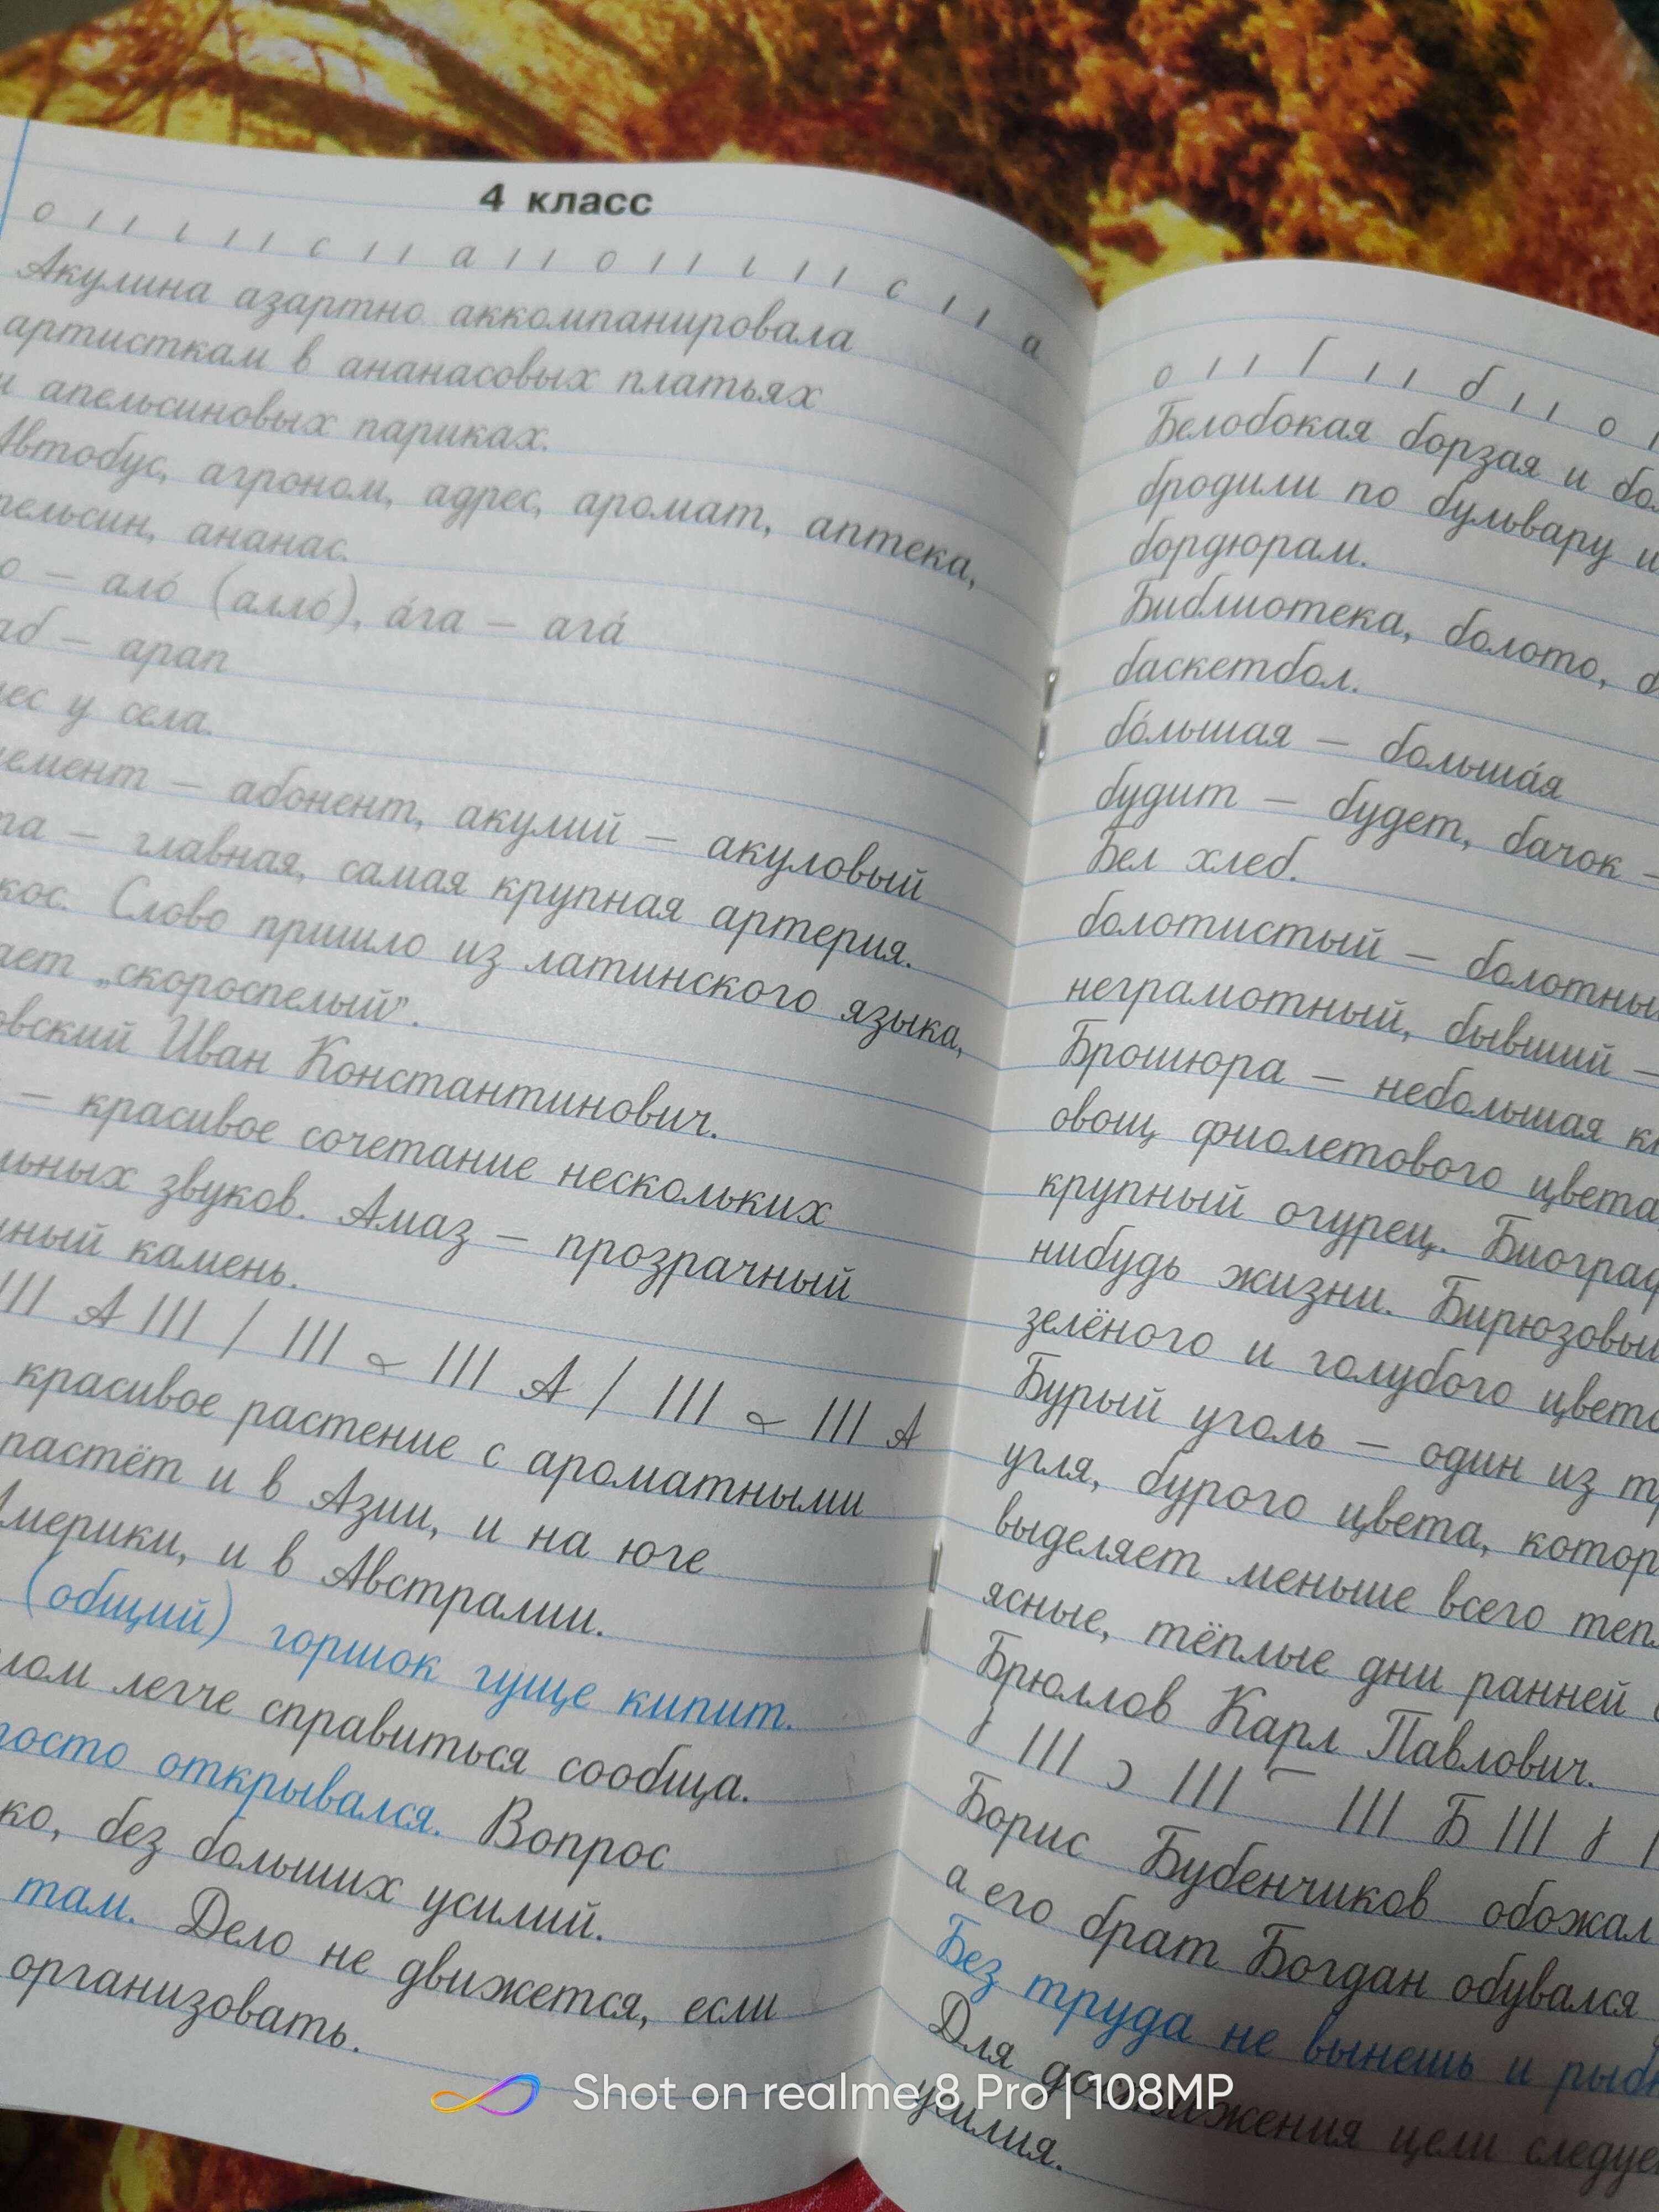 4 класс
о ı ı ι ı ı с ı ı а ı ı о ı ı ι ı ı с ı ı а
Акулина азартно аккомпанировала
артисткам в ананасовых платьях
и апельсиновых париках.
Автобус, агроном, адрес, аромат, аптека,
пельсин, ананас.
о – ало́ (алло́), а́га – ага́
аб – арап
лес у села.
немент – абонент, акулий – акуловый
та – главная, самая крупная артерия.
кос. Слово пришло из латинского языка,
ает „скороспелый”.
овский Иван Константинович.
– красивое сочетание нескольких
льных звуков. Амаз – прозрачный
нный камень.
III А III / III III А / III III А
красивое растение с ароматными
растёт и в Азии, и на юге
Америки, и в Австралии.
(общий) горшок гуще кипит.
лом легче справиться сообща.
росто открывался. Вопрос
ко, без больших усилий.
там. Дело не движется, если
организовать.
о ı ı ı ı б ı ı о ı
Белобокая борзая и бол
бродили по бульвару и
бордюрам.
Библиотека, болото, б
баскетбол.
бо́льшая – больша́я
будит – будет, бачок –
Бел хлеб.
болотистый – болотный
неграмотный, бывший –
Брошюра – небольшая кн
овощ фиолетового цвета
крупный огурец. Биограф
нибудь жизни. Бирюзовый
зелёного и голубого цвето
Бурый уголь – один из т
угля, бурого цвета, котор
выделяет меньше всего теп
ясные, тёплые дни ранней
Брюллов Карл Павлович.
III III III Б III
Борис Бубенчиков обожал
а его брат Богдан обувался
Без труда не вынешь и рыбк
Для достижения цели следуе
усилия.
Shot on realme 8 Pro | 108MP